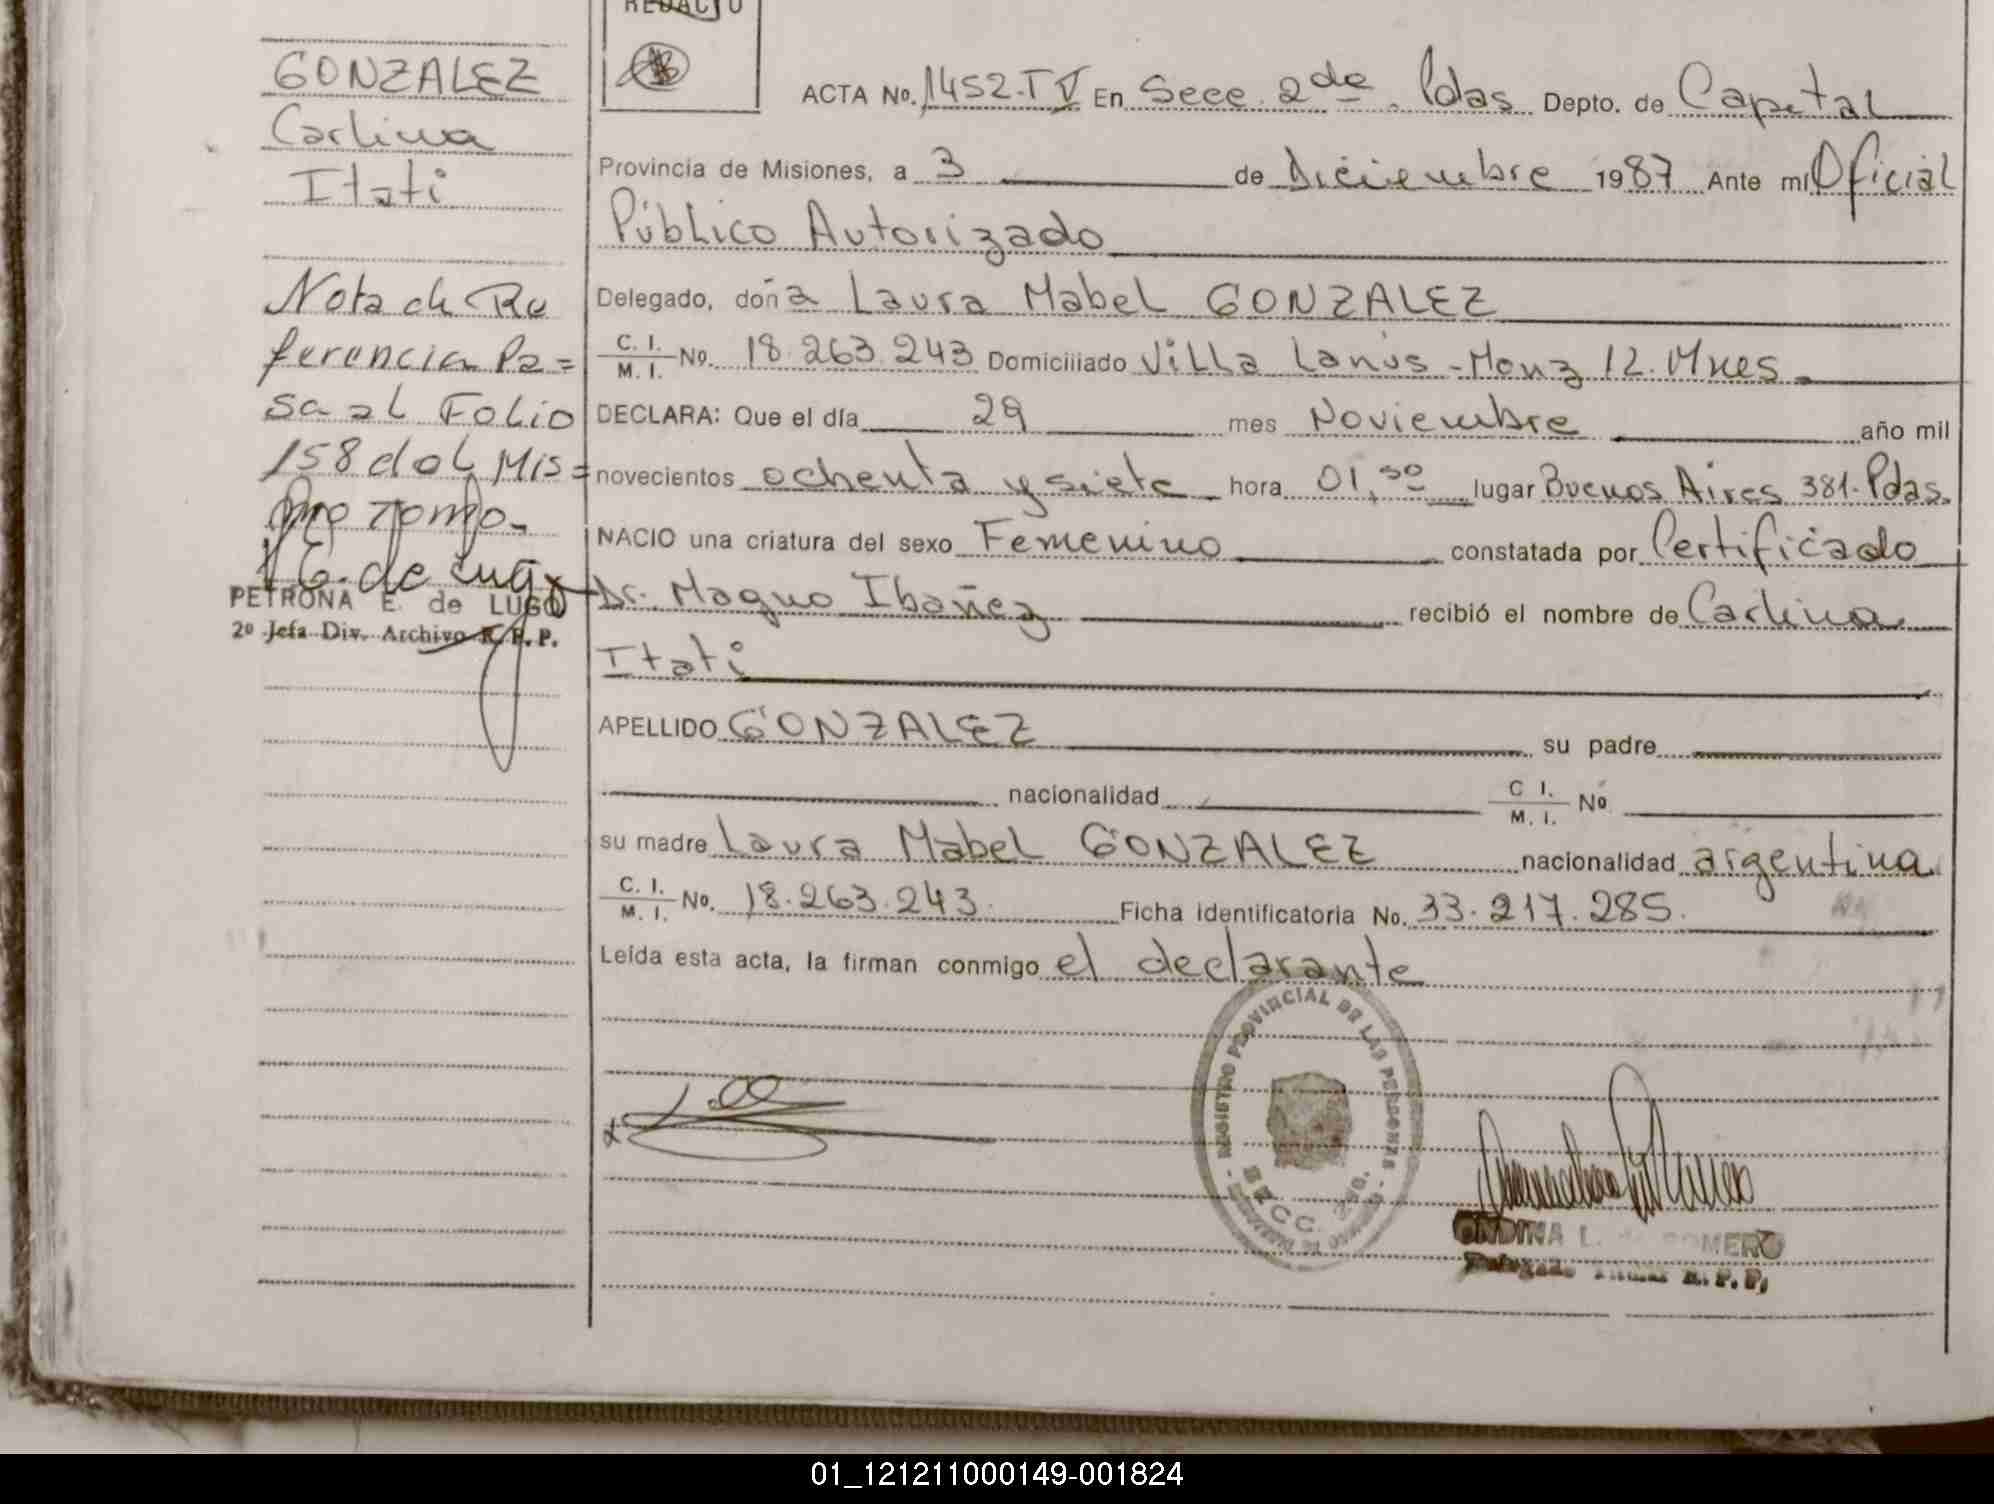 REDACTO
GONZALEZ
Carlina
Itati
Nota de Re
ferencia Pa=
sa al Folio
158 del Mis=
mo Tomo.-
PETRONA E. de LUGO
2º Jefa Div. Archivo R.P.P.
ACTA No. 1452.T V En Secc. 2da. Pdas Depto. de Capital
Provincia de Misiones, a 3 de Diciembre 1987 Ante mi Oficial
Público Autorizado
Delegado, doña Laura Mabel GONZALEZ
C. I. / M. I. No. 18.263.243 Domiciliado Villa Lanús - Monz 12. Mnes.
DECLARA: Que el día 29 mes Noviembre año mil
novecientos ochenta y siete hora 01,30 lugar Buenos Aires 381. Pdas.
NACIO una criatura del sexo Femenino constatada por Certificado
Dr. Magno Ibañez recibió el nombre de Carlina
Itati
APELLIDO GONZALEZ su padre
nacionalidad C I. / M. I. No
su madre Laura Mabel GONZALEZ nacionalidad argentina
C. I. / M. I. No. 18.263.243. Ficha identificatoria No. 33.217.285.
Leída esta acta, la firman conmigo el declarante
REGISTRO PROVINCIAL DE LAS PERSONAS
SECC. 2da.
ONDINA L. de ROMERO
Delegada Titular R.P.P.
01_121211000149-001824